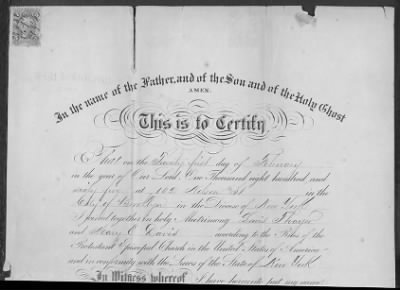 In the name of the Father, and of the Son and of the Holy Ghost
AMEN.
This is to Certify,
That on the Twenty first day of February
in the year of Our Lord One Thousand eight hundred and
sixty five at 102 St in the
City of Brooklyn in the Diocese of New York
I joined together in Holy Matrimony Davis
and Mary O. Davis according to the Rites of the
Protestant Episcopal Church in the United States of America
and in conformity with the Laws of the State of New York
In Witness whereof I have hereunto put my name